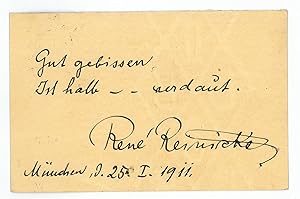 Gut gebissen
Ist halb – – verdaut.
René Reinicke
München, d. 25. I. 1911.